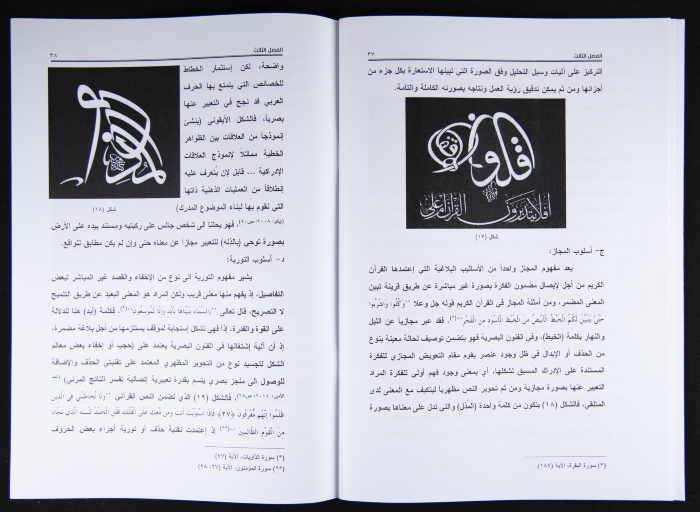 ٣٧
الفصل الثالث
التركيز على آليات وسيل التحليل وفق الصورة التي تبينها الاستعارة بكل جزء من
أجزائها ومن ثم يمكن تدقيق رؤية العمل ونتاجه بصورته الكاملة والتامة.
أفلا يتدبرون القرآن أم على
قلوب
شكل (١٧)
ج- أسلوب المجاز:
يعد مفهوم المجاز واحداً من الأساليب البلاغية التي إعتمدها القرآن
الكريم من أجل لإيصال مضمون الفكرة بصورة غير مباشرة عن طريق قرينة تبين
المعنى المضمر. ومن أمثلة المجاز في القرآن الكريم قوله جل وعلا ″وَكُلُوا وَاشْرَبُوا
حَتَّىٰ يَتَبَيَّنَ لَكُمُ الْخَيْطُ الْأَبْيَضُ مِنَ الْخَيْطِ الْأَسْوَدِ مِنَ الْفَجْرِ″(*)، فقد عبر مجازياً عن الليل
والنهار بكلمة (الخيط). وفي الفنون البصرية فهو يتضمن توصيف لحالة معينة بنوع
من الحذف أو الإبدال في ظل وجود عنصر يقوم مقام التعويض المجازي للفكرة
المستندة على الادراك المسبق تشكلها، أي بمعنى وجود فهم أولي للفكرة المراد
التعبير عنها بصورة مجازية ومن ثم تحوير النص مظهرياً ليتكيف مع المعنى لدى
المتلقي، فالشكل (١٨) يتكون من كلمة واحدة (المُذل) والتي تدل على معناها بصورة
(*) سورة البقرة، الآية (١٨٧).
٣٨
الفصل الثالث
واضحة، لكن إستثمار الخطاط
للخصائص التي يتمتع بها الحرف
العربي قد نجح في التعبير عنها
بصرياً، فالشكل الأيقوني (ينشئ
إنموذجاً من العلاقات بين الظواهر
الخطية مماثلاً لإنموذج العلاقات
الإدراكية ... قابل لإن يُتعرف عليه
إنطلاقاً من العمليات الذهنية ذاتها
التي نقوم بها لبناء الموضوع المدرك)
شكل (١٨)
(إيكو، ٢٠٠٨، ص٤٥)، فهو يحلنا الى شخص جالس على ركبتيه ومستند بيده على الأرض
بصورة توحي (بالذله) للتعبير مجازاً عن معناه حتى وإن لم يكن مطابق للواقع.
د- أسلوب التورية:
يشير مفهوم التورية الى نوع من الإخفاء والقصد غير المباشر لبعض
التفاصيل، إذ يفهم منها معنى قريب ولكن المراد هو المعنى البعيد عن طريق التلميح
لا التصريح، قال تعالى ″وَالسَّمَاءَ بَنَيْنَاهَا بِأَيْدٍ وَإِنَّا لَمُوسِعُونَ″(*). فكلمة (أيد) هنا للدلالة
على القوة والقدرة، إذاً فهي تشكل إستجابة لموقف يستلزمها من أجل بلاغة مضمرة،
إذ أن آلية إشتغالها في الفنون البصرية يعتمد على (حجب أو إخفاء بعض معالم
الشكل لتجسيد نوع من التحوير المظهري المعتمد على تقنيتي الحذف والاضافة
للوصول الى منجز بصري يتسم بقدرة تعبيرية إتصالية تفسر الناتج المرئي)
، فالشكل (١٩) الذي تضمن النص القرآني ″وَلَا تُخَاطِبْنِي فِي الَّذِينَ
ظَلَمُوا إِنَّهُمْ مُغْرَقُونَ ﴿٢٧﴾ فَإِذَا اسْتَوَيْتَ أَنْتَ وَمَنْ مَعَكَ عَلَى الْفُلْكِ فَقُلِ الْحَمْدُ لِلَّهِ الَّذِي نَجَّانَا
مِنَ الْقَوْمِ الظَّالِمِينَ″(**) إذ إعتمدت تقنية حذف أو تورية أجزاء بعض الحروف
(*) سورة الذاريات، الآية (٤٧).
(**) سورة المؤمنون، الآية (٢٧، ٢٨).